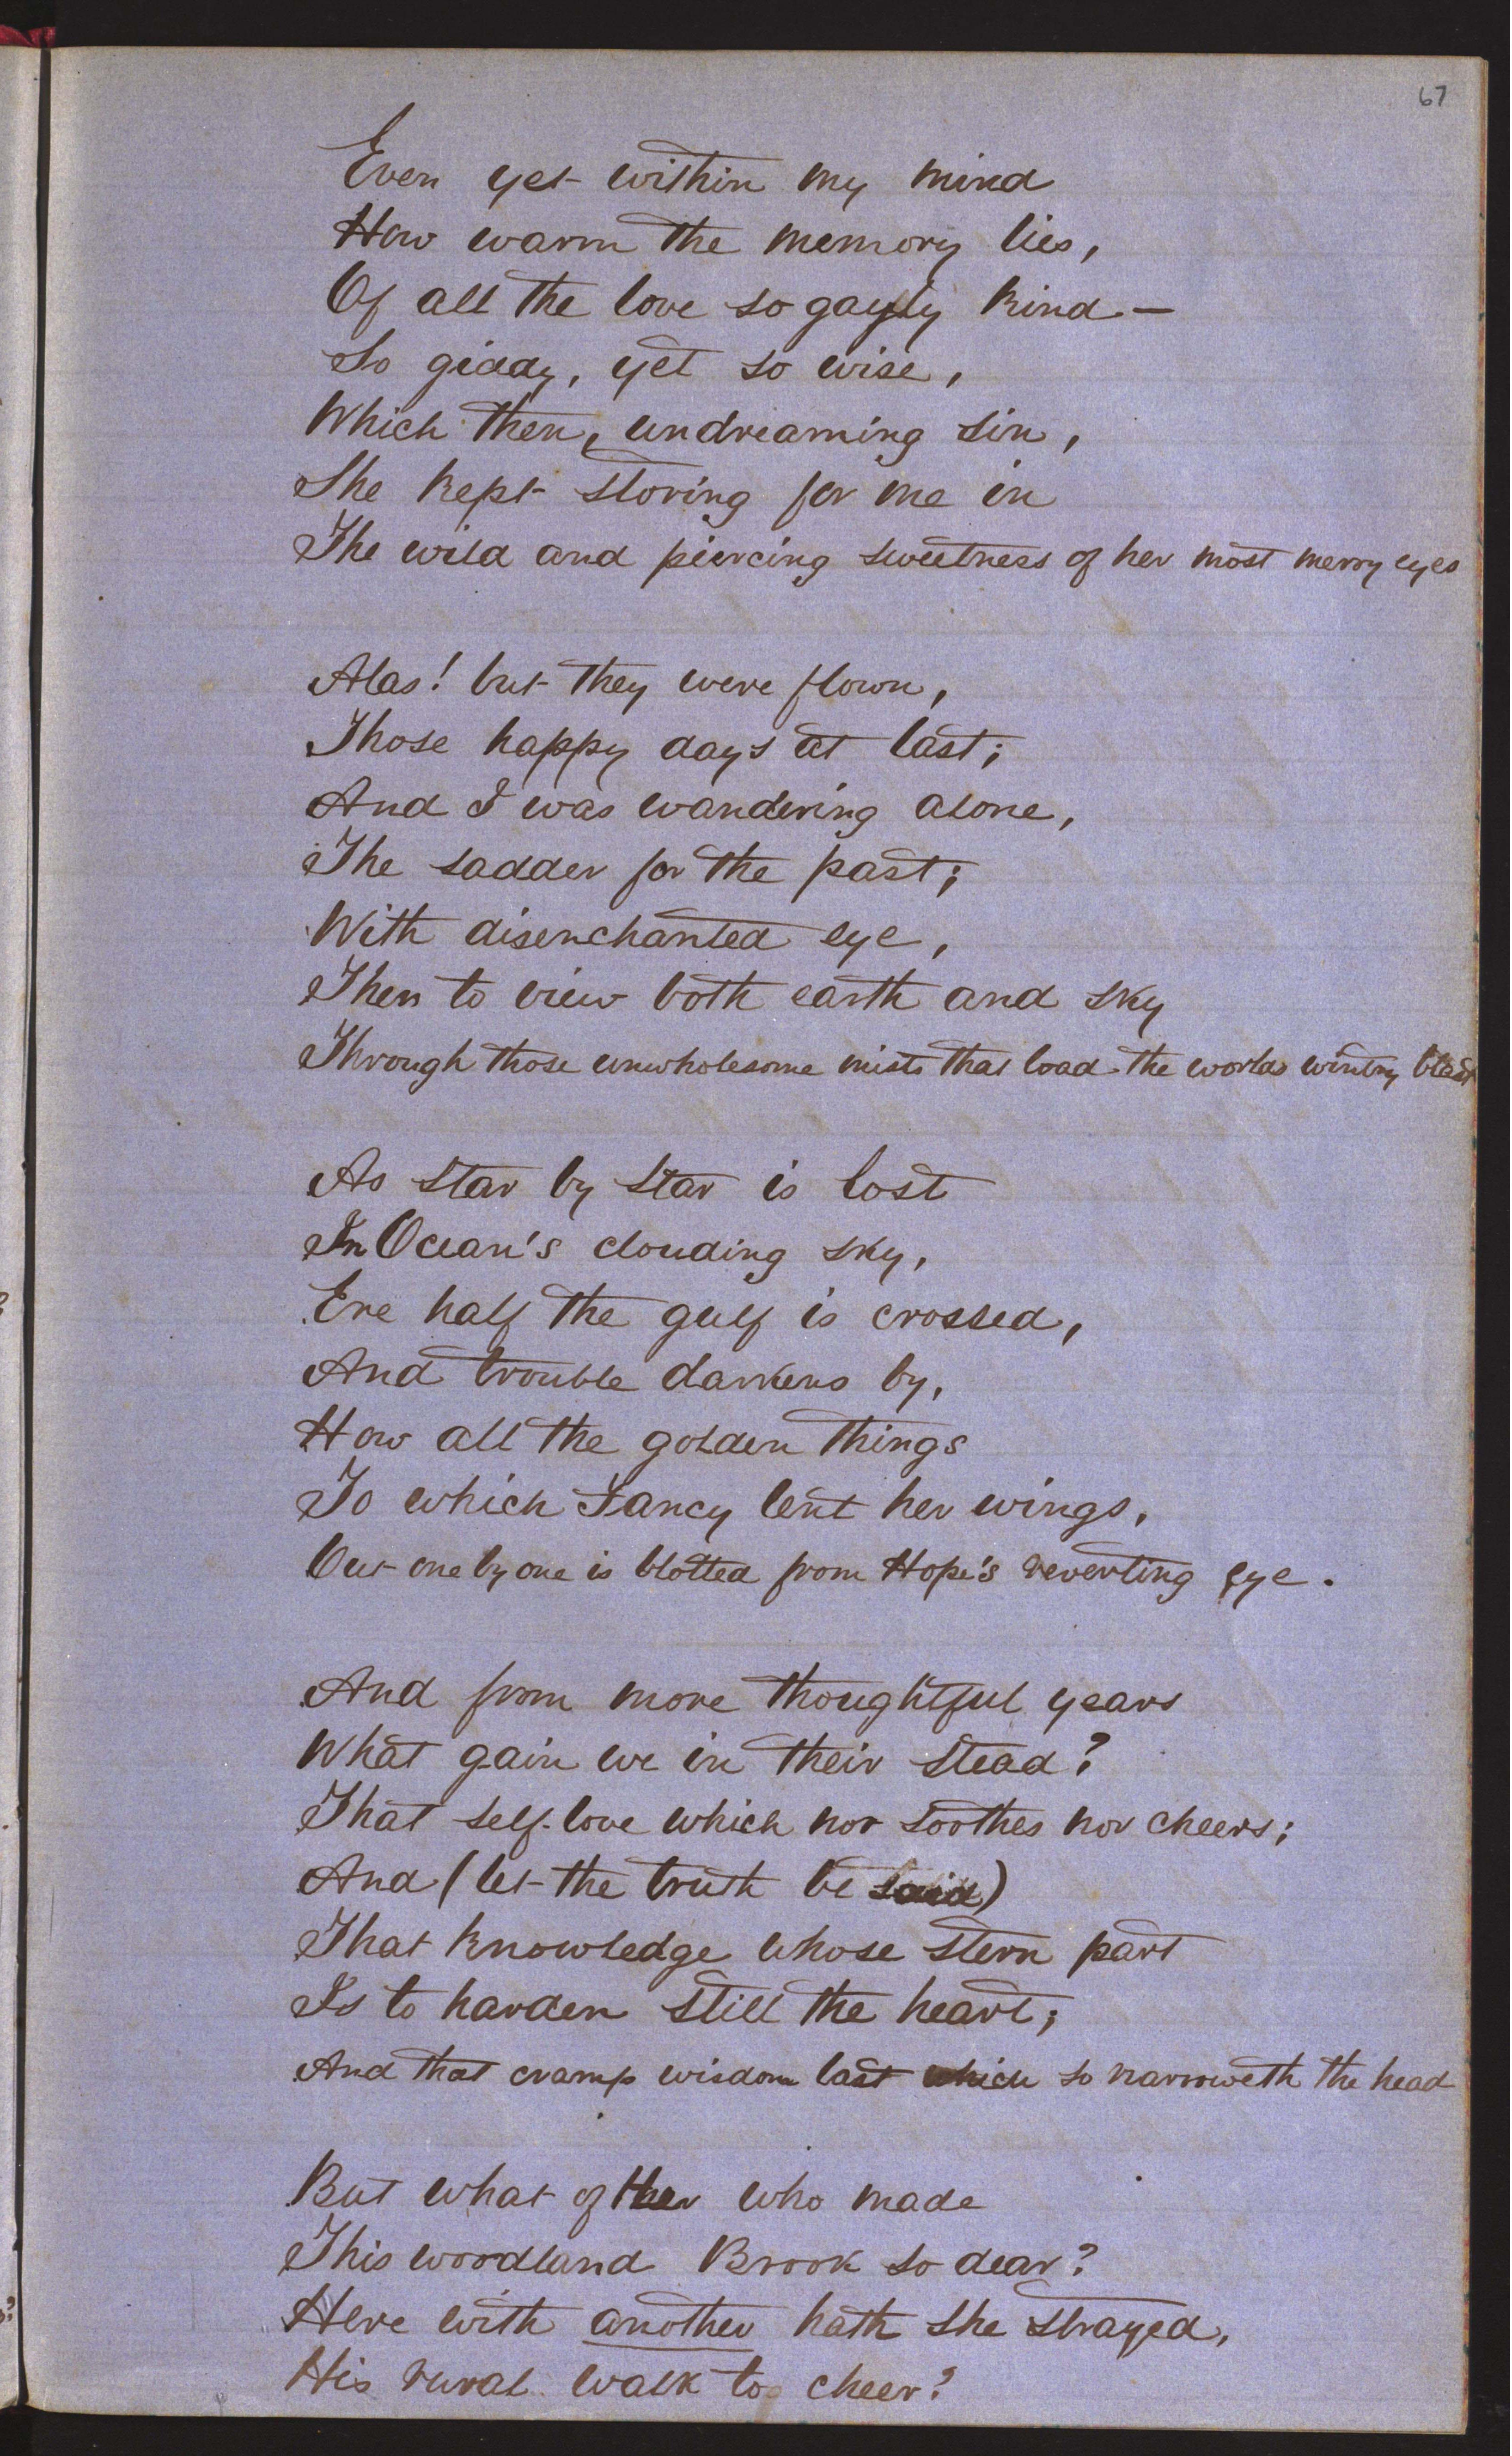 67
Even yet within my mind
How warm the memory lies,
Of all the love so gayly kind —
So giddy, yet so wise,
Which then, undreaming sin,
She kept storing for me in
The wild and piercing sweetness of her most merry eyes
Alas! but they were flown,
Those happy days at last;
And I was wandering alone,
The sadder for the past;
With disenchanted eye,
Then to view both earth and sky
Through those unwholesome mists that load the worlds wintry blast
As star by star is lost
In Ocean's clouding sky,
Ere half the gulf is crossed,
And trouble darkens by,
How all the golden things
To which Fancy lent her wings,
Out one by one is blotted from Hope's reverting eye.
And from more thoughtful years
What gain we in their stead?
That self-love which nor soothes nor cheers;
And (let the truth be said)
That knowledge whose stern part
Is to harden still the heart;
And that cramp wisdom last which so narroweth the head
But what of Her who made
This woodland Brook so dear?
Here with another hath she strayed,
His rural walk to cheer?